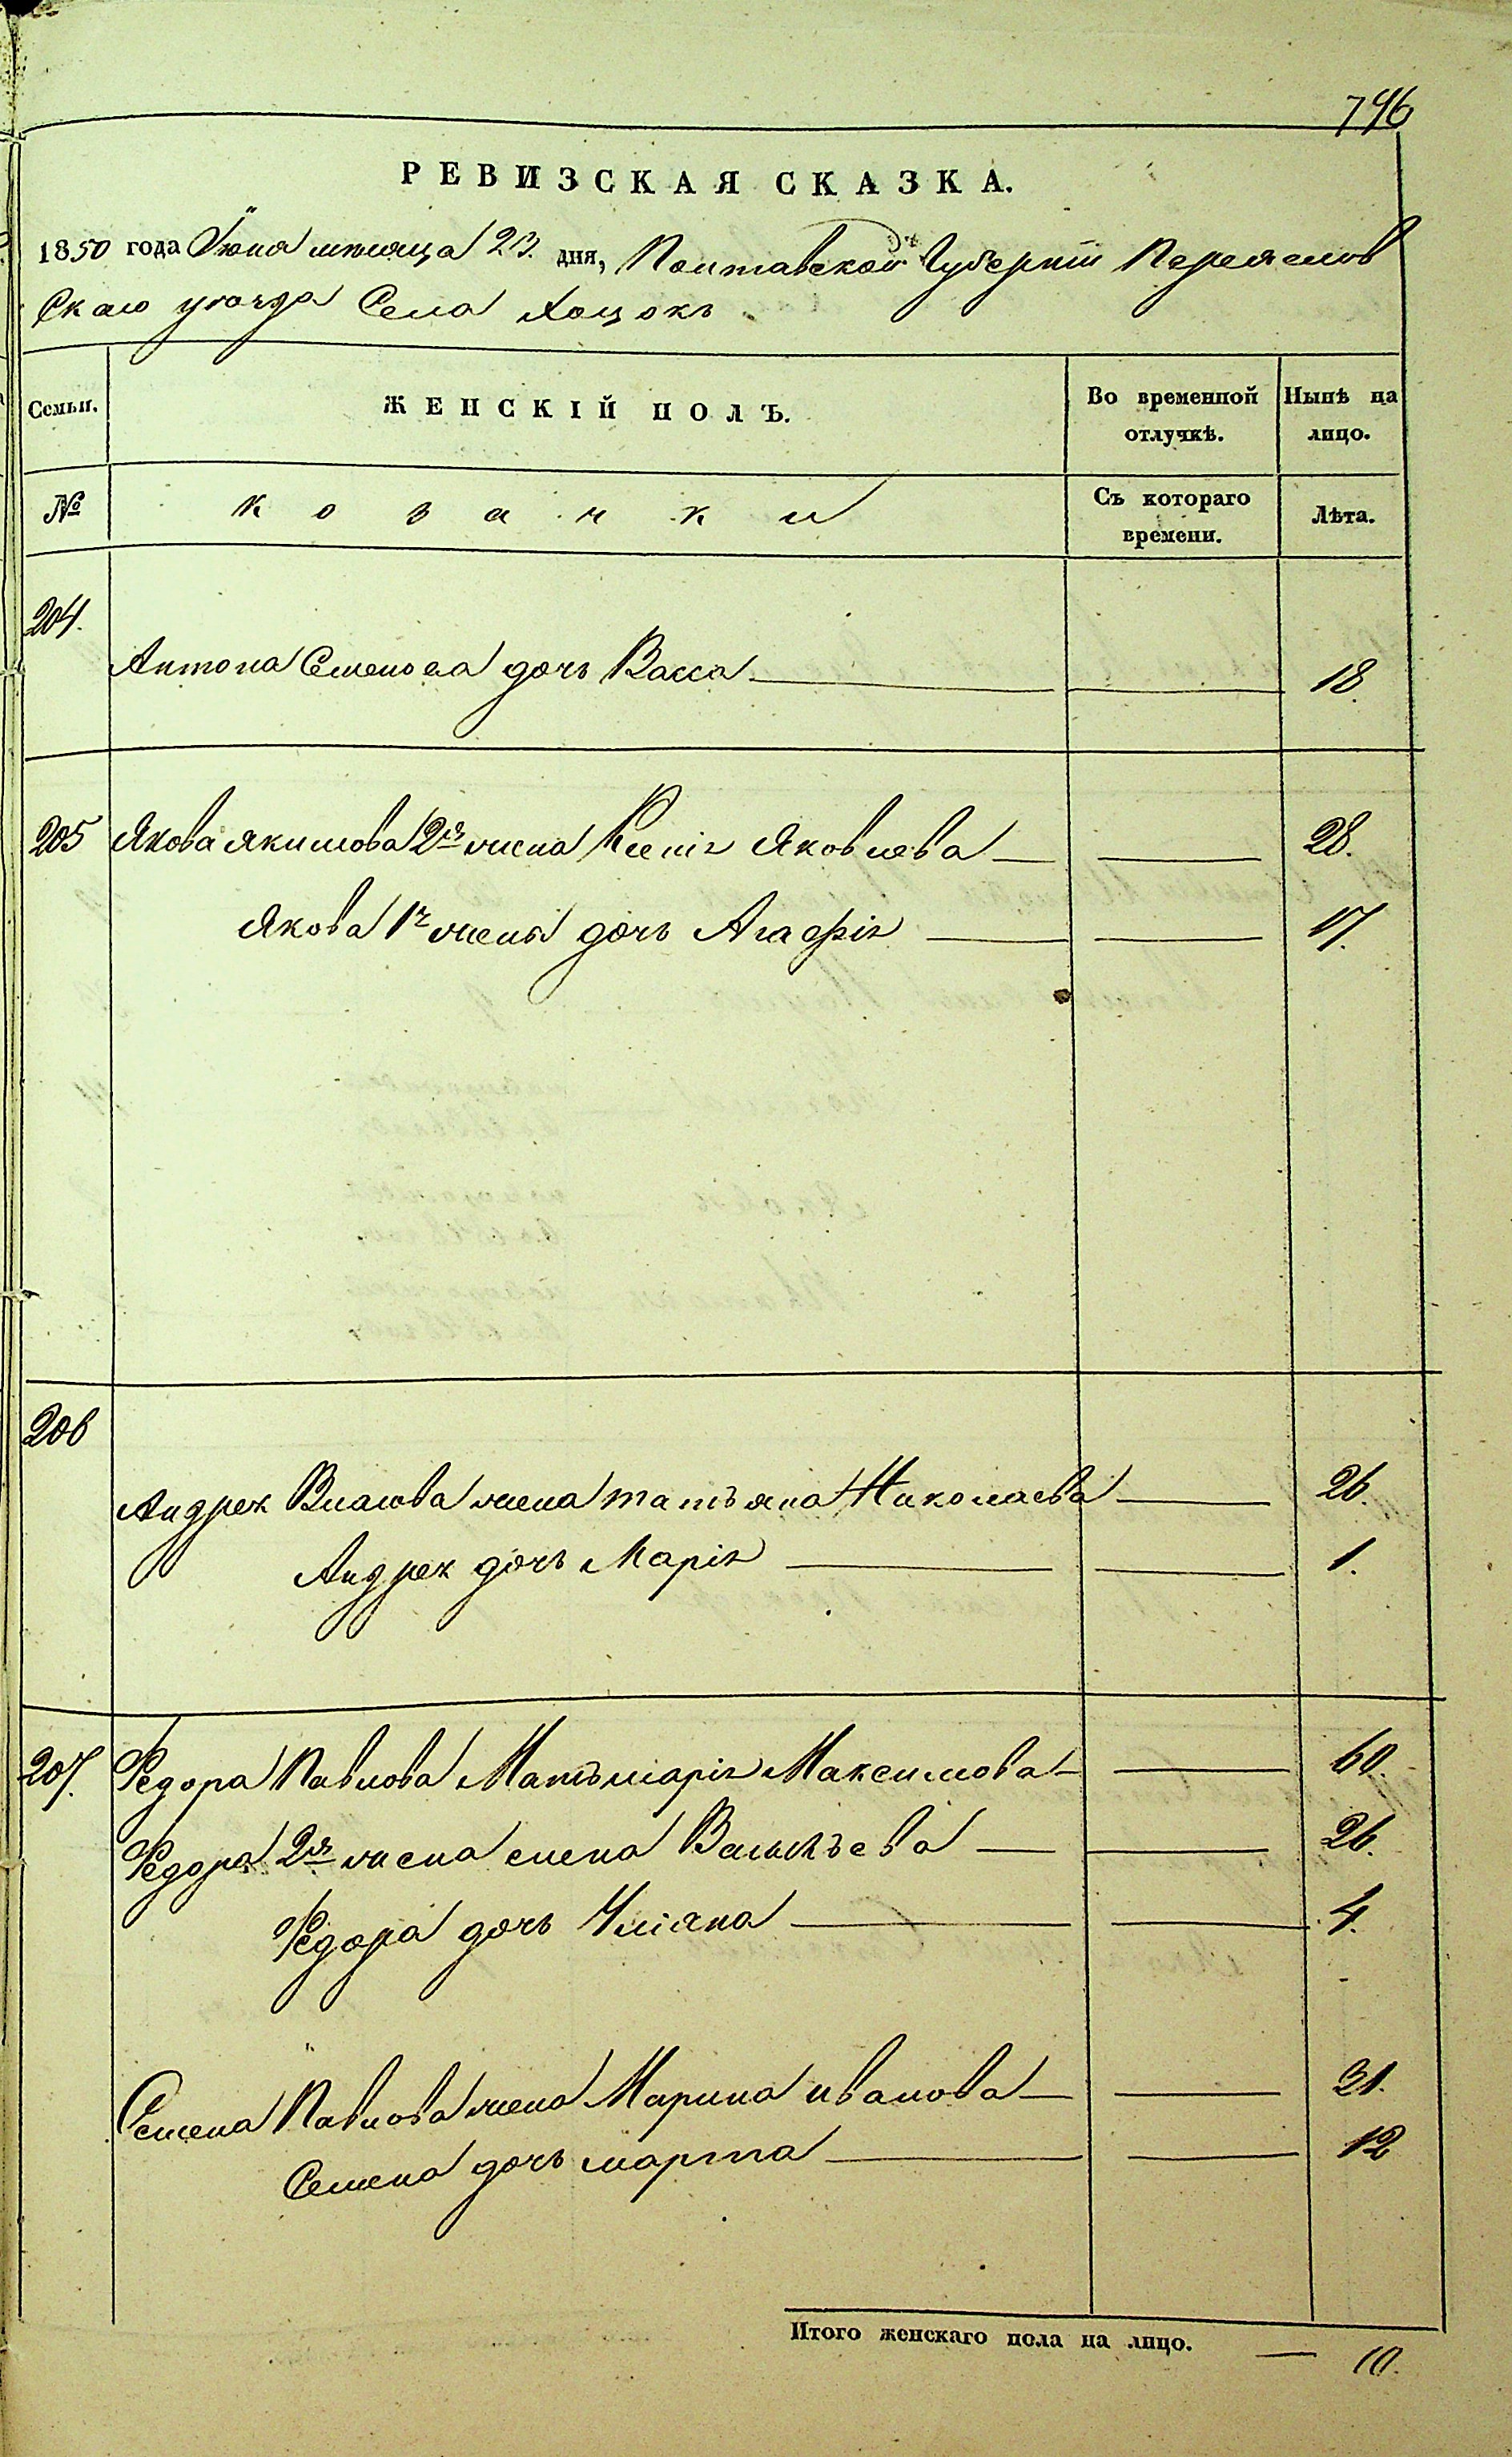 796
РЕВИЗСКАЯ СКАЗКА.
1850 года Іюня месяца 23. дня, Полтавской Губерніи Переяслов
Скаго уезда Села Хоцокъ
Семьи. ЖЕНСКІЙ ПОЛЪ. Во временной отлучкѣ. Нынѣ на лицо.
№ козачки Съ котораго времени. Лѣта.
204.
Антона Семенова дочь Васса 18.
205 Якова Якимова 2я жена Ксенія Яковлева 28.
Якова 1й жены дочь Агафія 17.
206
Андрея Власова жена татьяна Николаева 26.
Андрея дочь Марія 1.
207. Федора Павлова Мать марія Максимова 60.
Федора 2я жена елена Васильева 26.
Федора дочь Уліяна 4.
Семена Павлова жена Марина иванова 31.
Семена дочь марта 12
Итого женскаго пола на лицо. 10.